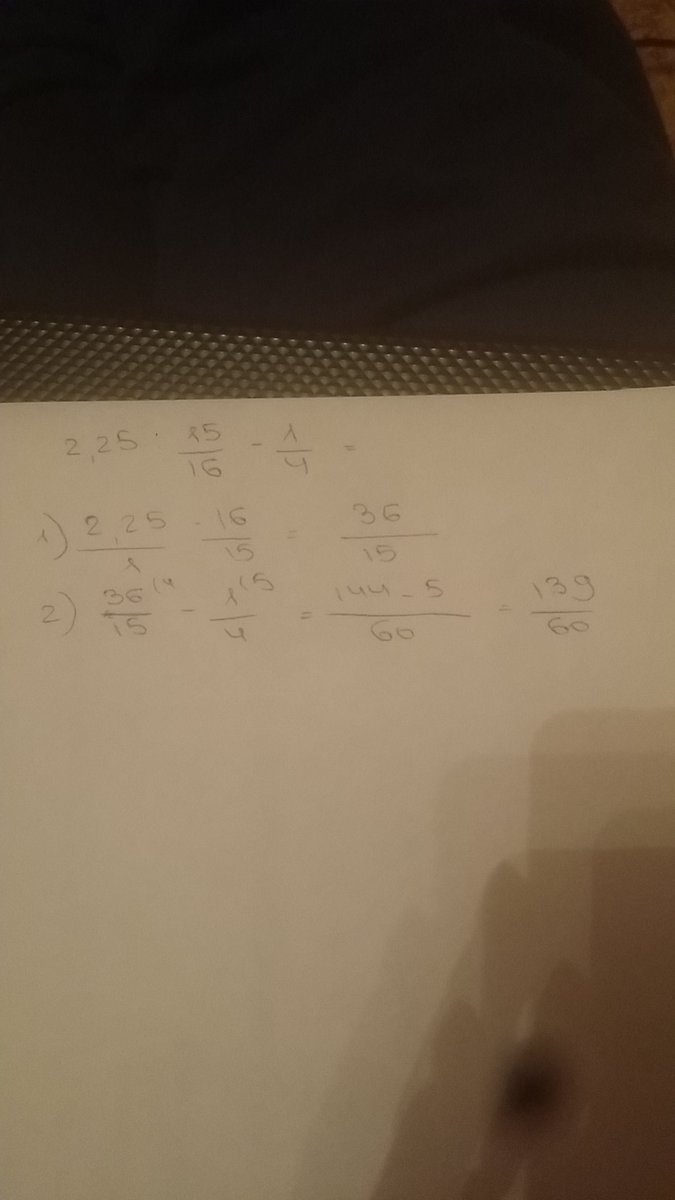 2,25 · 15/16 - 1/4 =
1) 2,25/1 · 16/15 = 36/15
2) 36(4/15 - 1(5/4 = 144-5/60 = 139/60